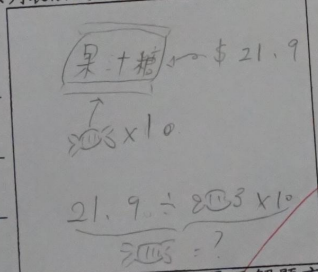 果汁糖 $ 21.9
x10
21.9 ÷ x10
= ?